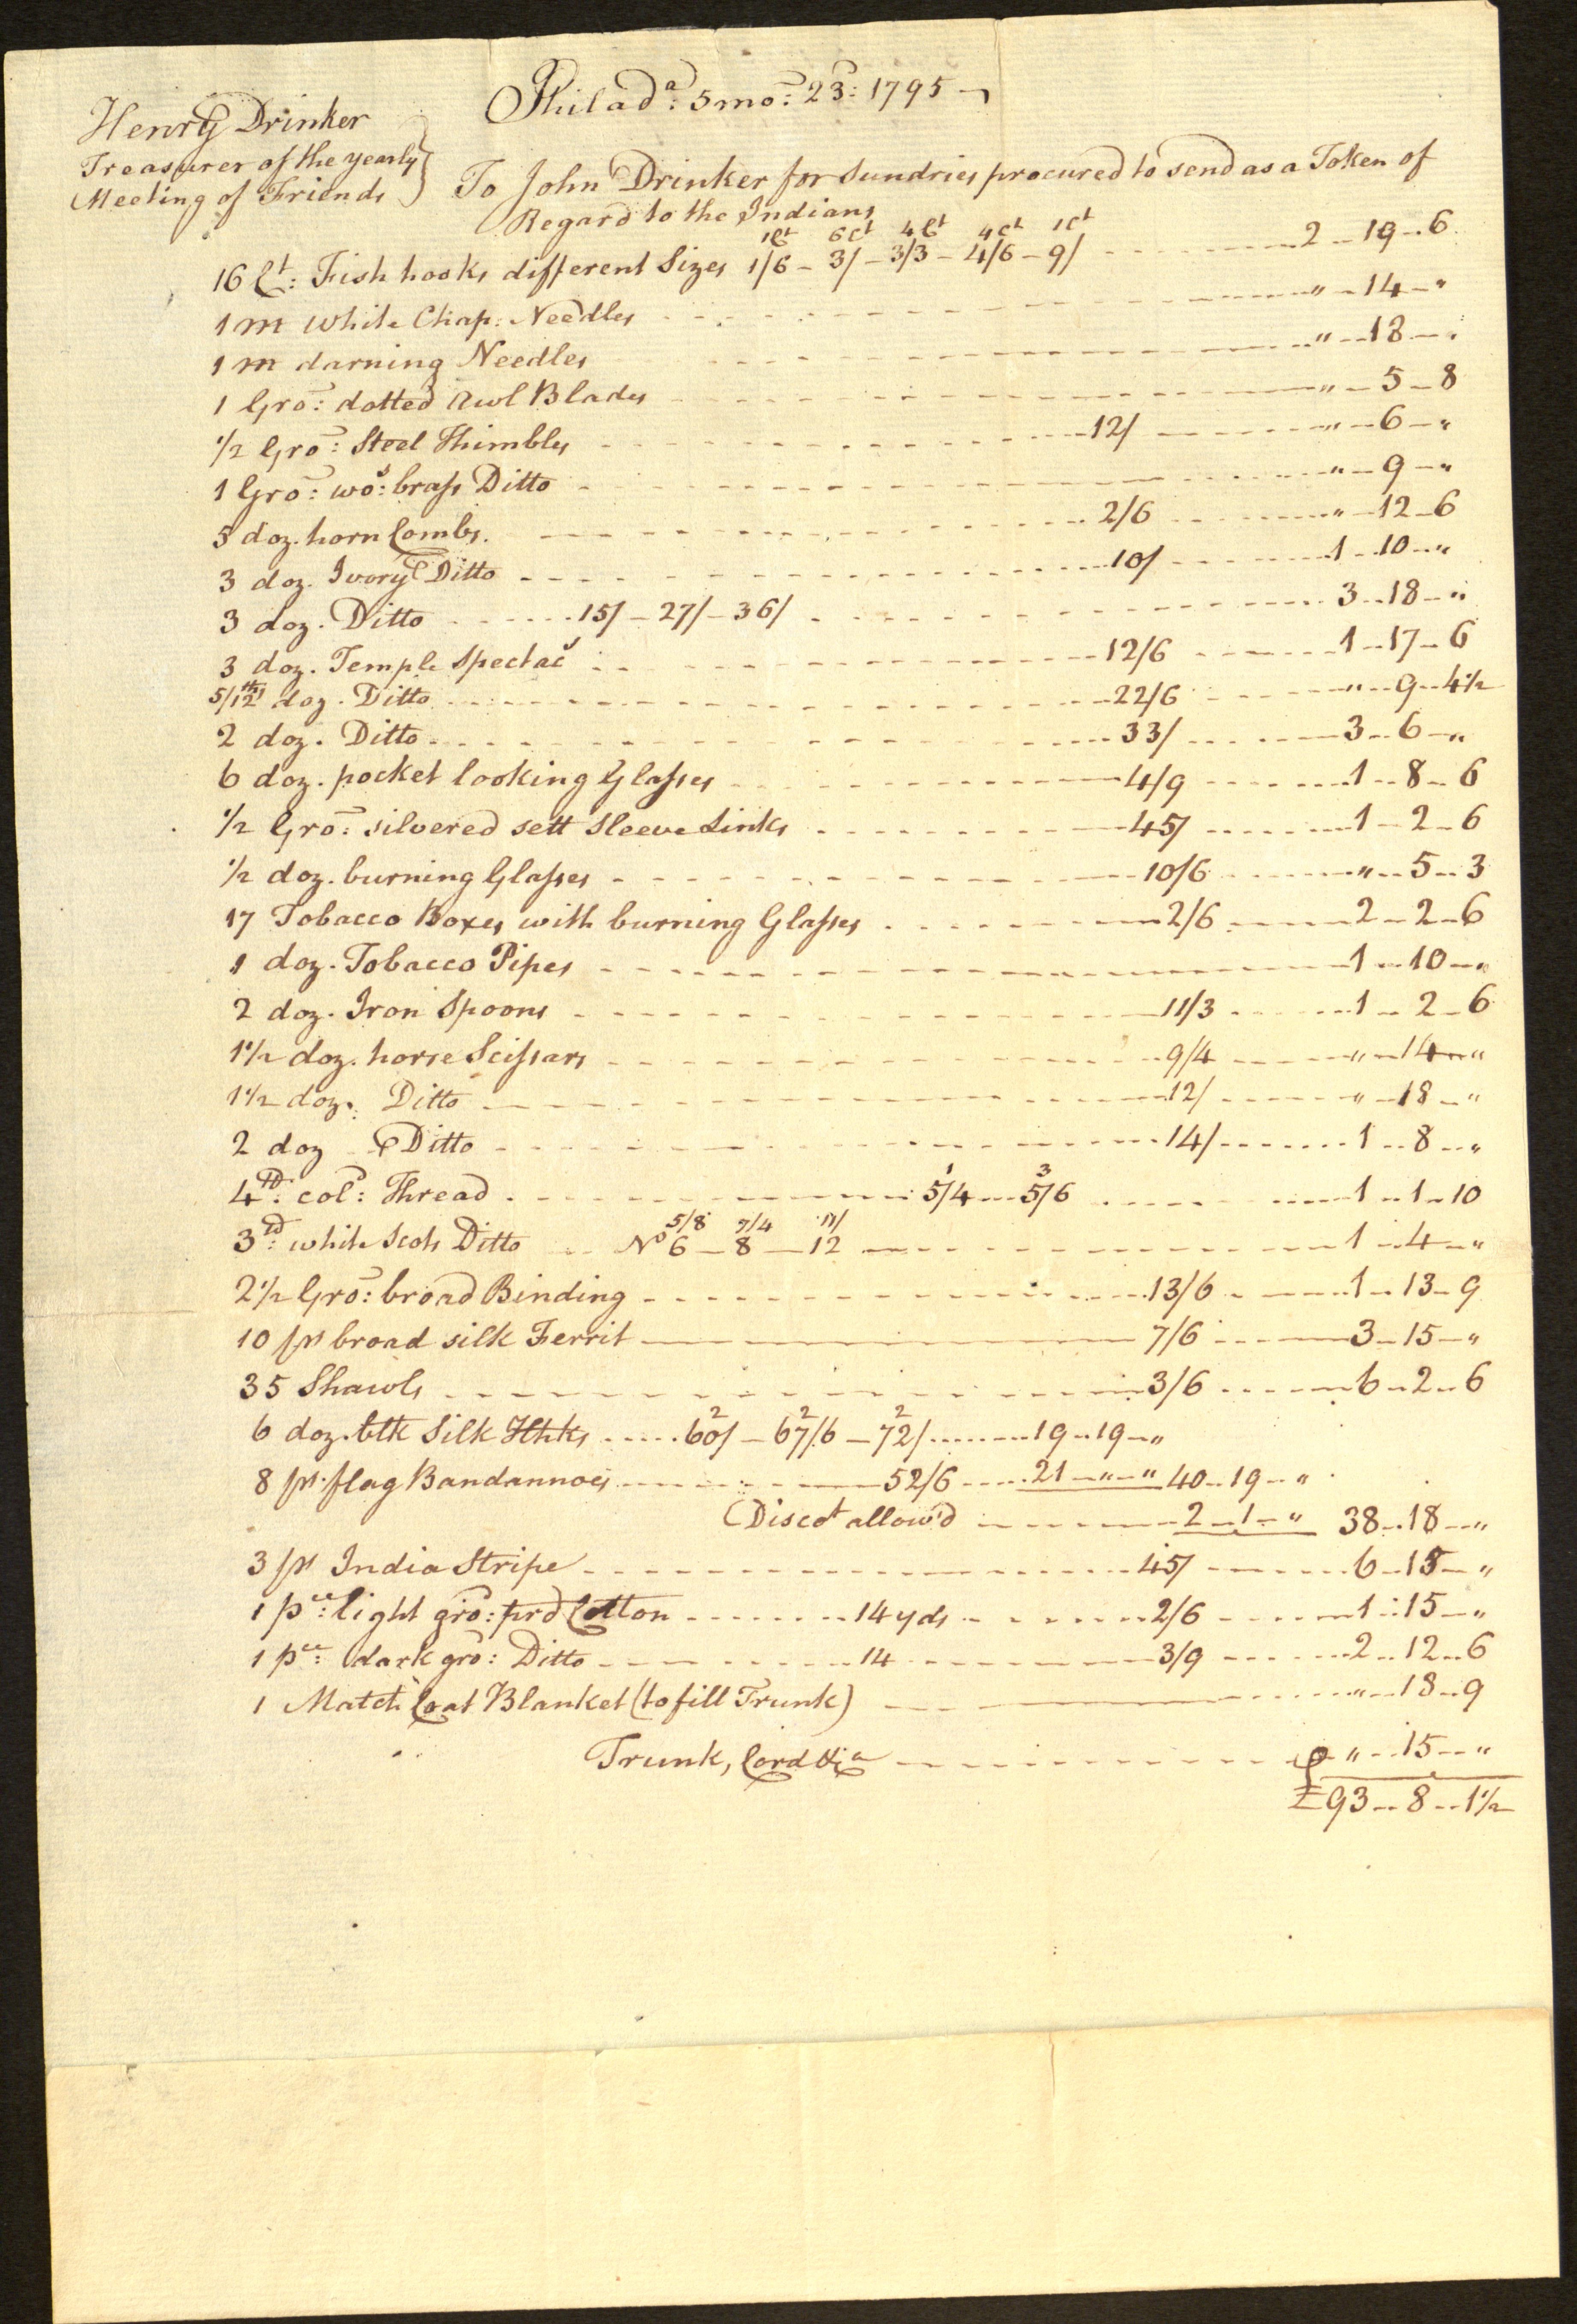 Philad.ª: 5 mo: 23: 1795
Henry Drinker
Treasurer of the yearly
Meeting of Friends
To John Drinker for Sundries procured to send as a Token of
Regard to the Indians
1Ct 6Ct 4Ct 4Ct 1Ct
16 Ct: Fish hooks different Sizes 1/6 – 3/ – 3/3 – 4/6 – 9/ 2 – 19 – 6
1 m White Chap. Needles " – 14 – "
1 m darning Needles " – 18 – "
1 Gro: dotted Awl Blades " – 5 – 8
1/2 Gro: Steel Thimbles 12/ " – 6 – "
1 Gro: wo.s: brass Ditto " – 9 – "
5 doz. horn Combs. 2/6 " – 12 – 6
3 doz. Ivory Ditto 10/ 1 – 10 – "
3 doz. Ditto 15/ – 27/ – 36/ 3 – 18 – "
3 doz. Temple Spectac.s 12/6 1 – 17 – 6
5/12ths doz. Ditto 22/6 " – 9 – 4 1/2
2 doz. Ditto 33/ 3 – 6 – "
6 doz. pocket looking Glasses 4/9 1 – 8 – 6
1/2 Gro: silvered sett Sleeve Links 45/ 1 – 2 – 6
1/2 doz. burning Glasses 10/6 " – 5 – 3
17 Tobacco Boxes with burning Glasses 2/6 2 – 2 – 6
1 doz. Tobacco Pipes 1 – 10 – "
2 doz. Iron Spoons 11/3 1 – 2 – 6
1 1/2 doz. horse Scissars 9/4 " – 14 – "
1 1/2 doz. Ditto 12/ " – 18 – "
2 doz Ditto 14/ 1 – 8 – "
1 3
4 lb: col.d: Thread 5/4 – 5/6 1 – 1 – 10
5/8 7/4 11/
3 lb: white Scots Ditto No 6 – 8 – 12 1 – 4 – "
2 1/2 Gro: broad Binding 13/6 1 – 13 – 9
10 ps broad silk Ferrit 7/6 3 – 15 – "
35 Shawls 3/6 6 – 2 – 6
2 2 2
6 doz. blk Silk Hhks 60/ – 67/6 – 72/ 19 – 19 – "
8 ps. flag Bandannoes 52/6 21 – " – " 40 – 19 – "
Discot allow'd 2 – 1 – " 38 – 18 – "
3 ps India Stripe 45/ 6 – 15 – "
1 pce: light gro: prd Cotton 14 yds 2/6 1 – 15 – "
1 pce: dark gro: Ditto 14 3/9 2 – 12 – 6
1 Match Coat Blanket (to fill Trunk) " – 18 – 9
Trunk, Cord &ca " – 15 – "
£93 – 8 – 1 1/2